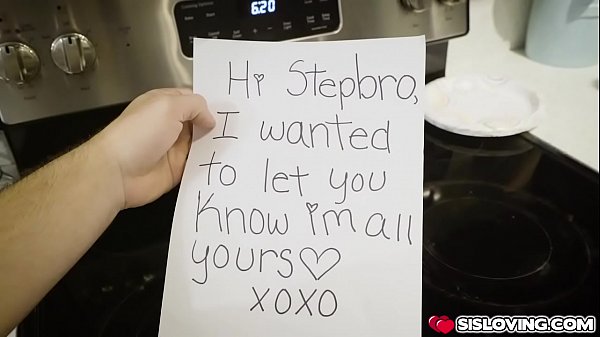 6:20
Hi Stepbro,
I wanted
to let you
Know im all
yours♡
xoxo
SISLOVING.COM